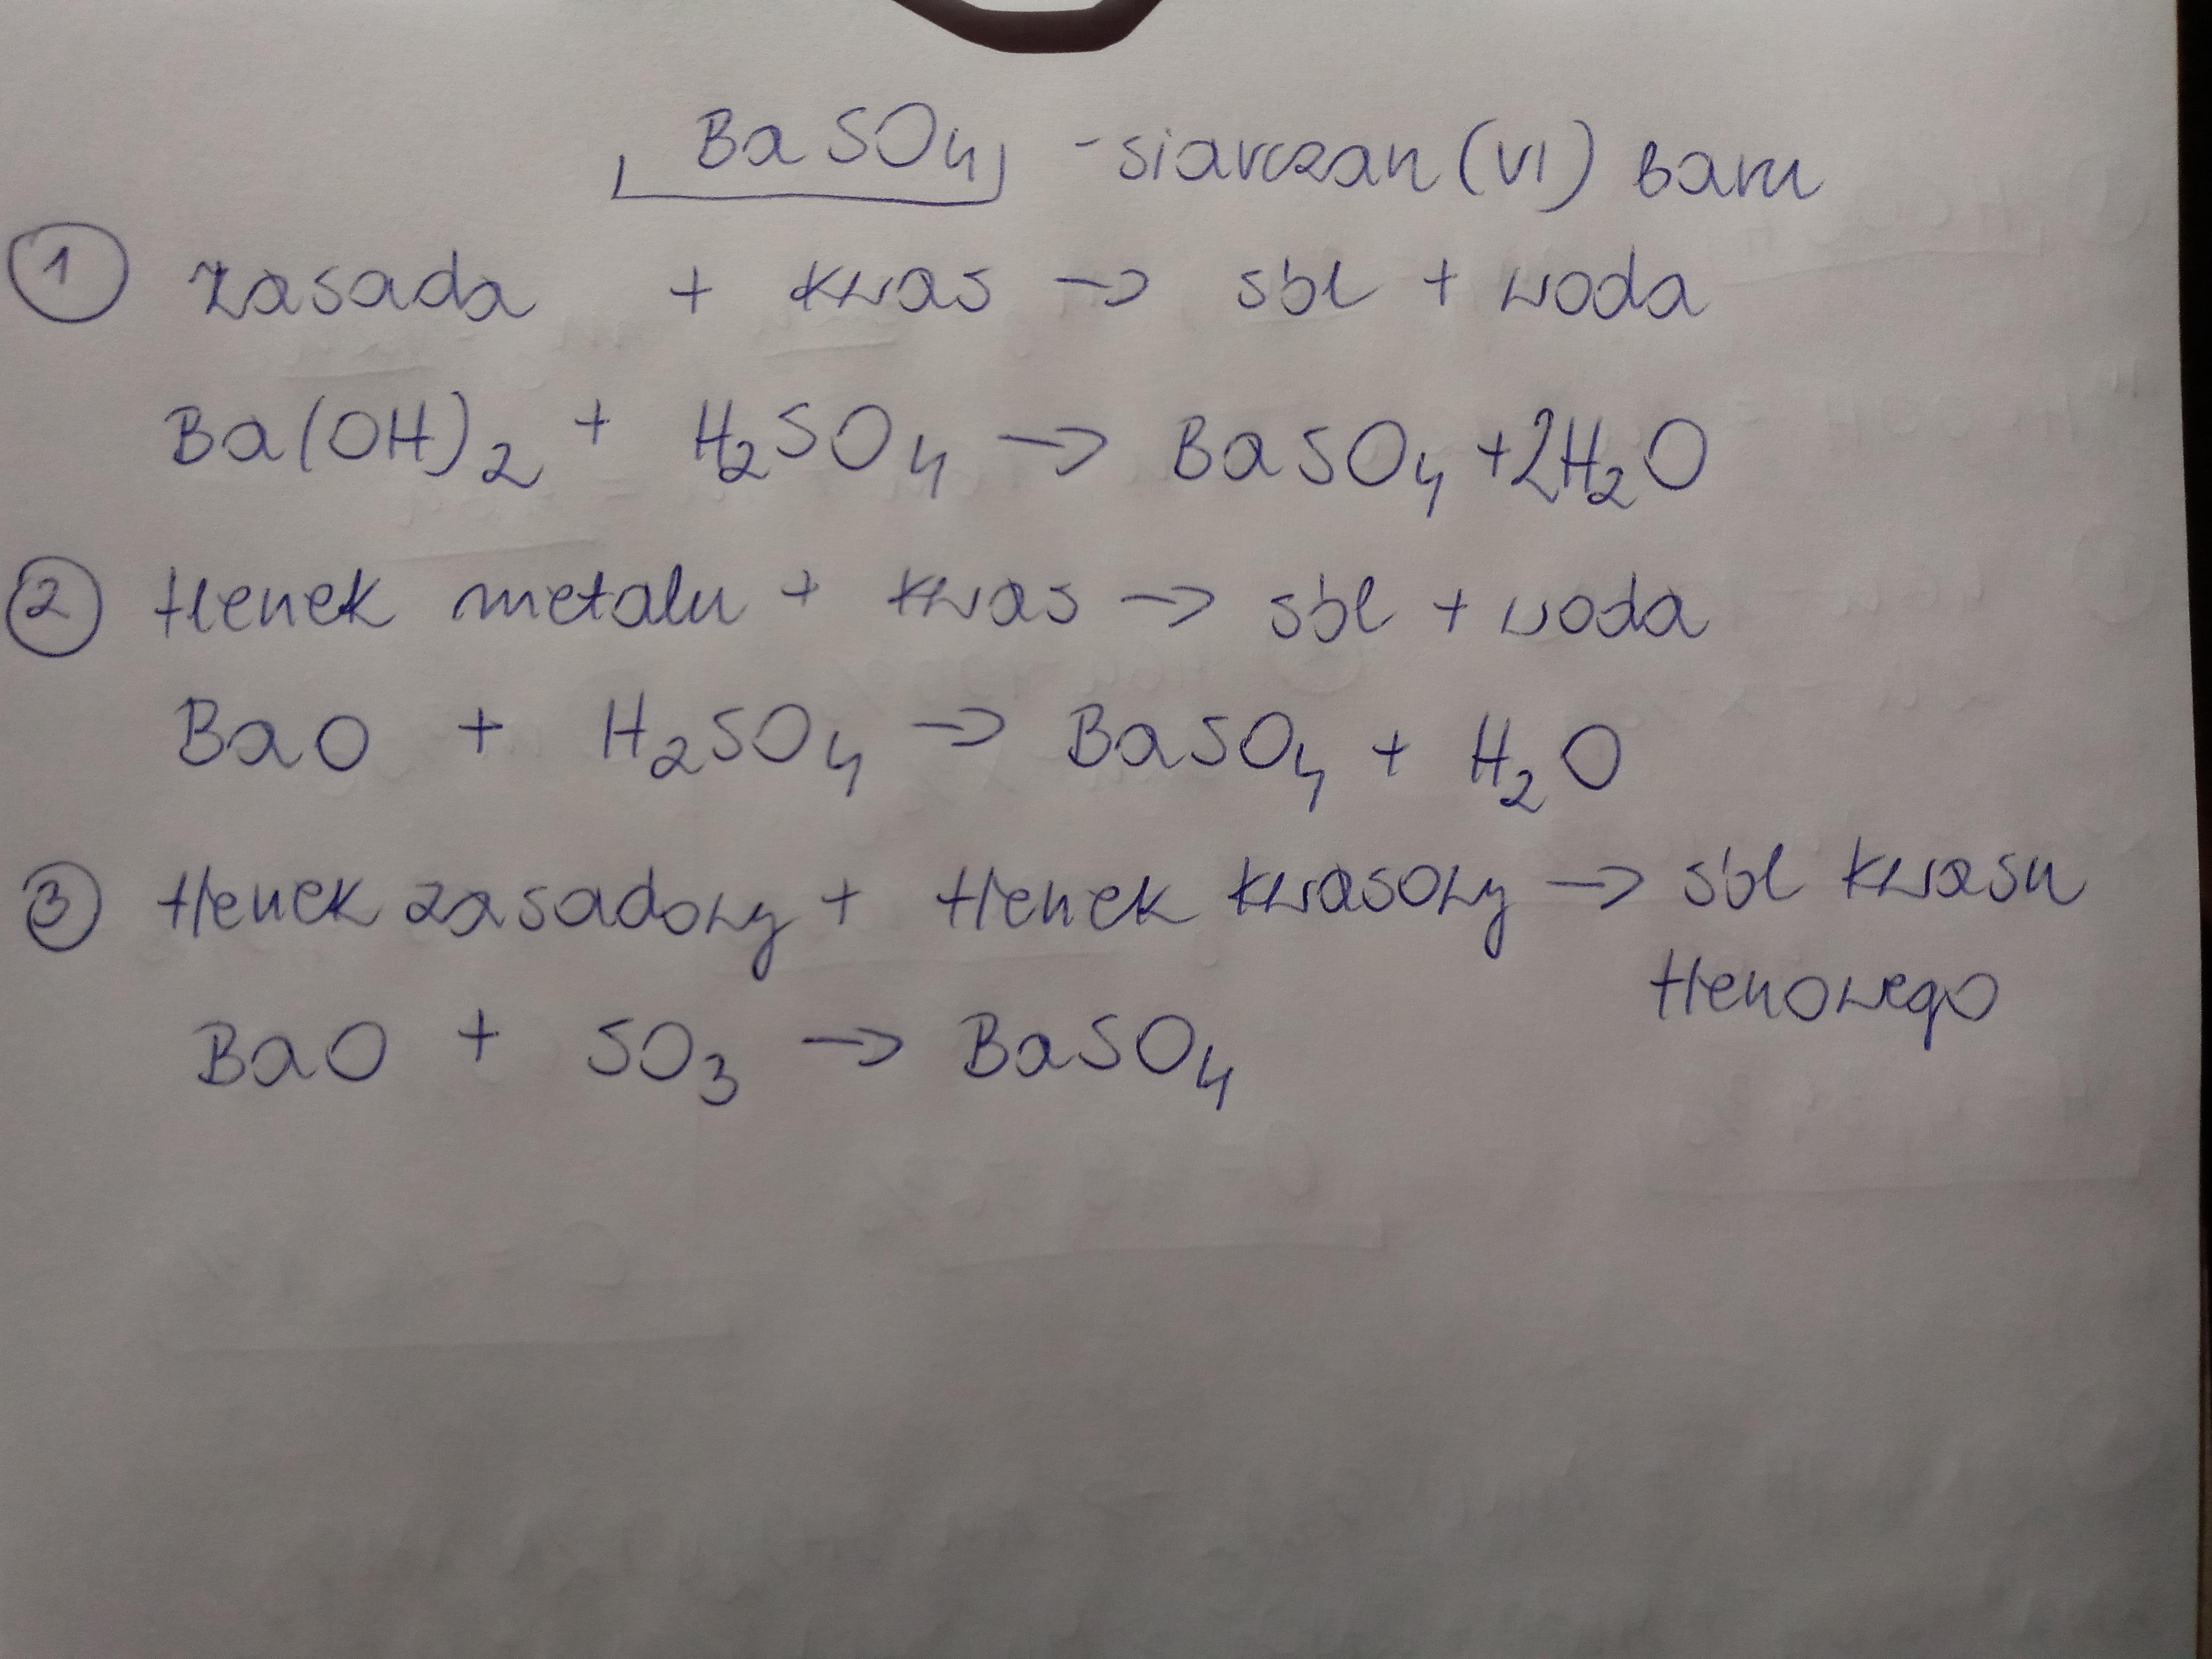 BaSO₄ - siarczan (VI) baru
① zasada + kwas → sól + woda
Ba(OH)₂ + H₂SO₄ → BaSO₄ + 2H₂O
② tlenek metalu + kwas → sól + woda
BaO + H₂SO₄ → BaSO₄ + H₂O
③ tlenek zasadowy + tlenek kwasowy → sól kwasu
tlenowego
BaO + SO₃ → BaSO₄